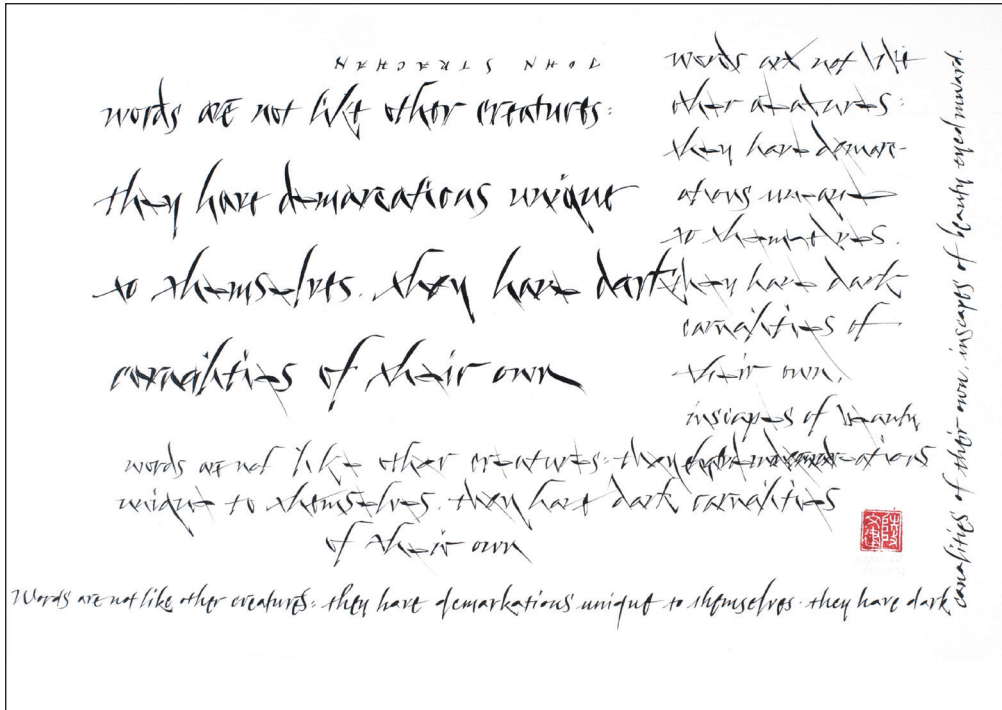 JOHN
words are not like other creatures:
they have demarcations unique
to themselves. they have dark
carnalities of their own
words are not like
other creatures:
they have demarc-
ations unique
to themselves.
they have dark
carnalities of
their own,
inscapes of beauty
words are not like other creatures: they
unique to themselves. they have dark carnalities
of their own
Words are not like other creatures: they have demarkations unique to themselves. they have dark
carnalities of their own. inscapes of beauty eyed inward.